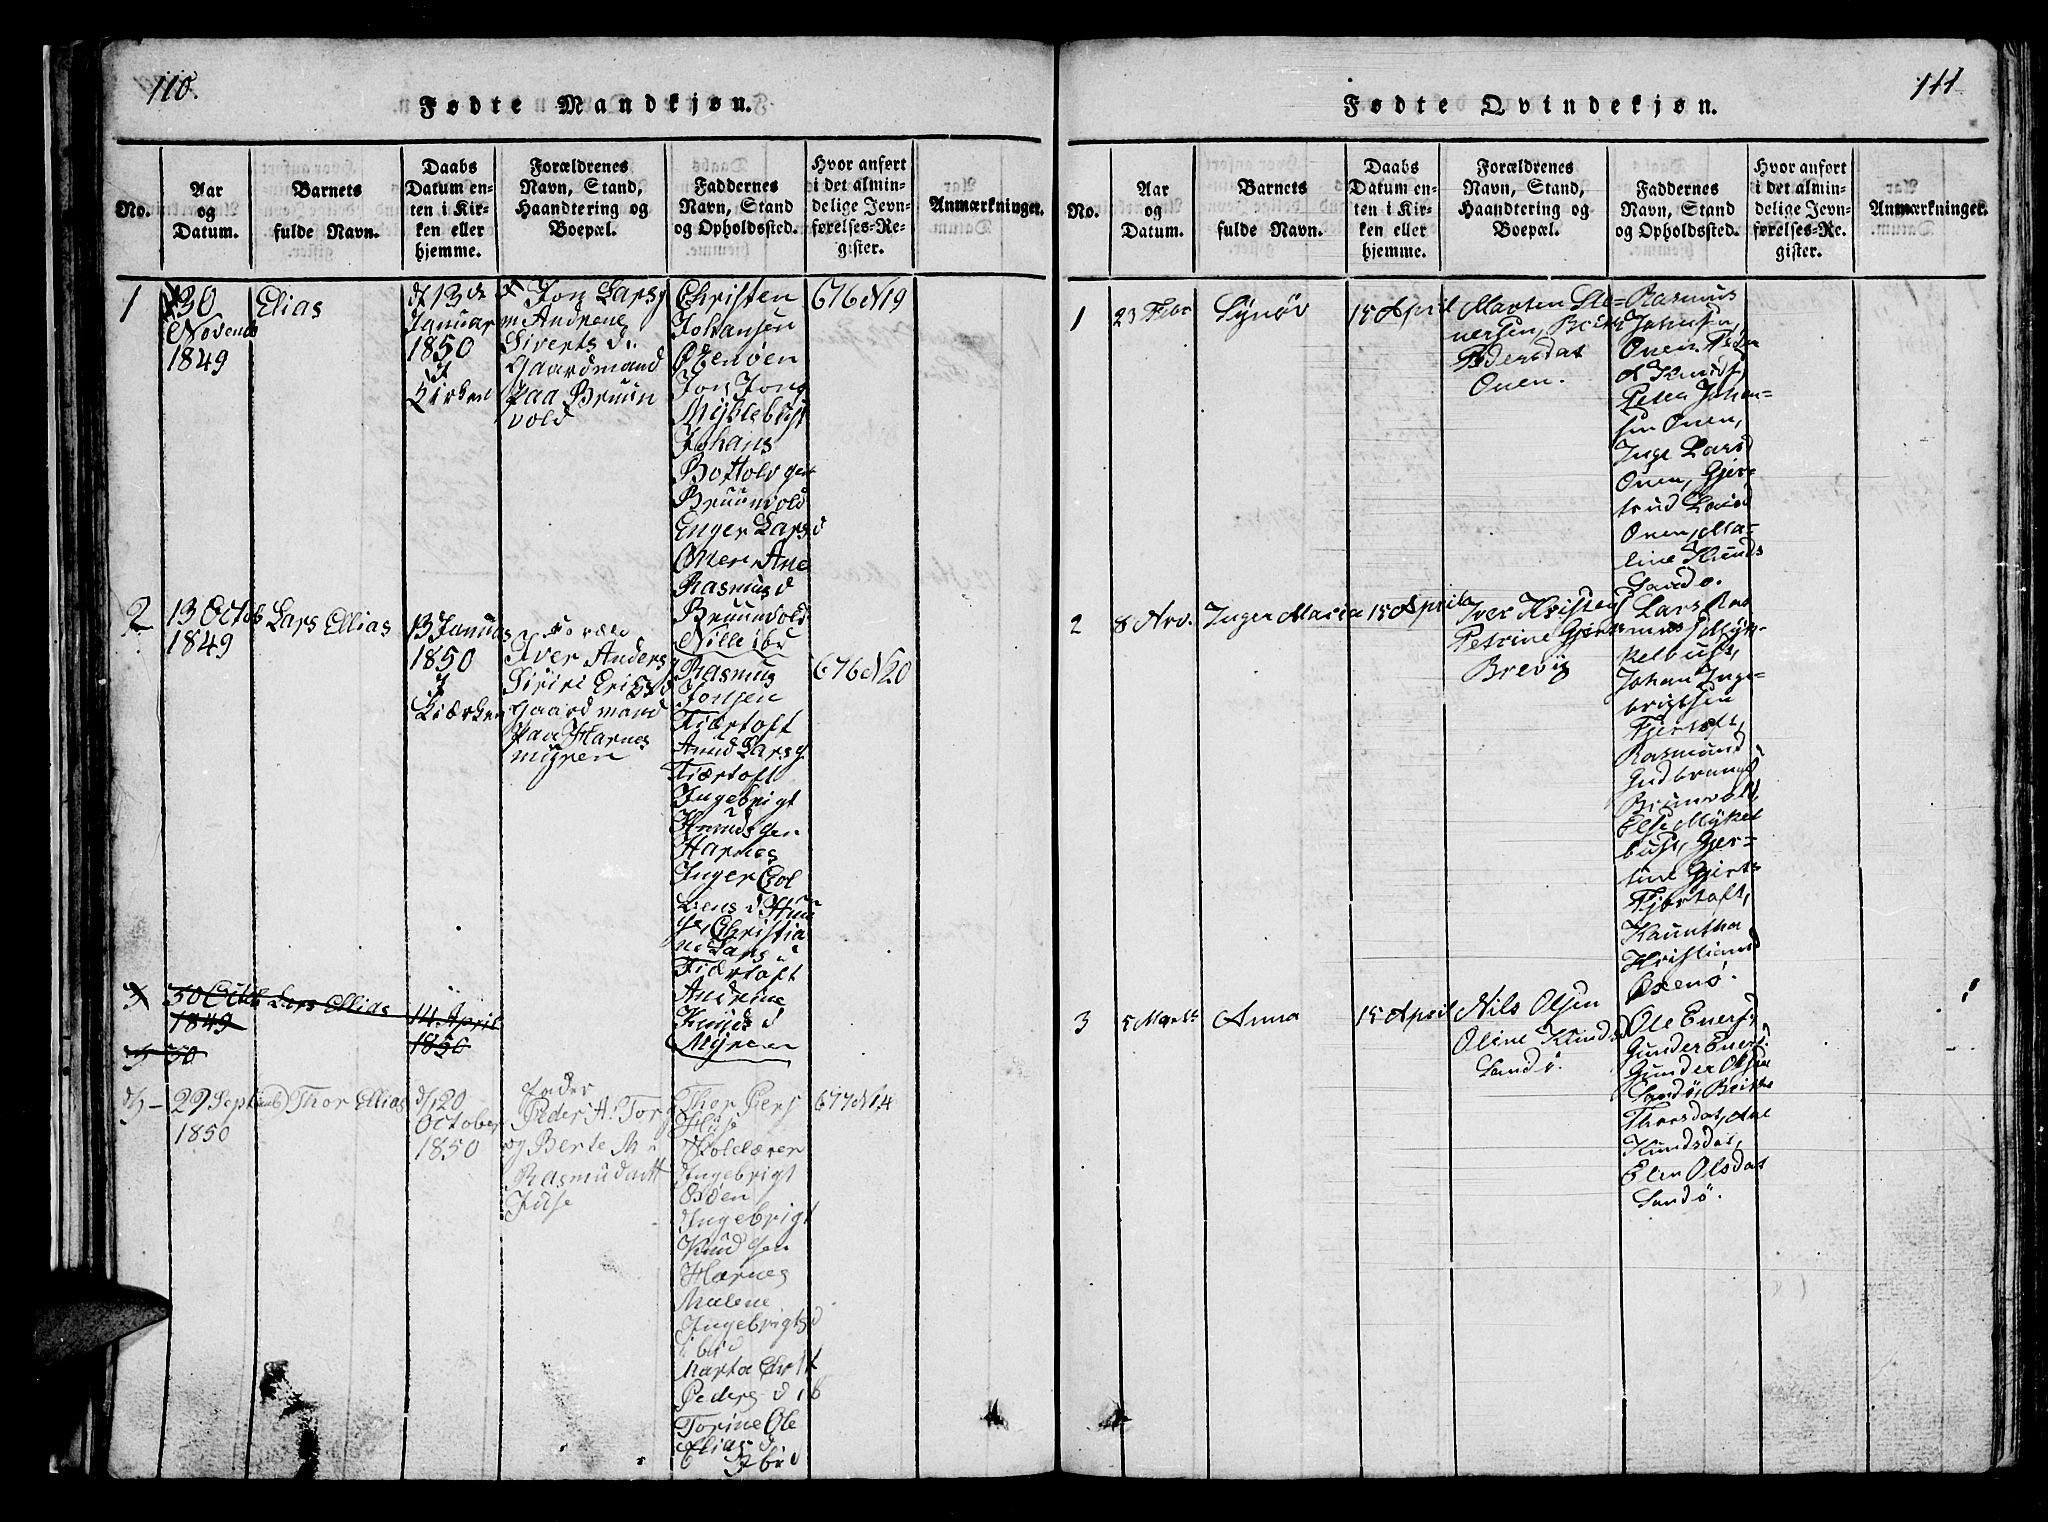 110.
Fødte Mandkjøn.
No.
Aar
og
Datum.
Barnets
fulde Navn.
Daabs
Datum en-
ten i Kir-
ken eller
hjemme.
Forældrenes
Navn, Stand,
Haandtering og
Boepæl.
Faddernes
Navn, Stand
og Opholdssted.
Hvor anført
i det almin-
delige Jevn-
førelses-Re-
gister.
Anmærkninger.
1
30
Novemb
1849
Elias
d 13 d
Januar
1850
I
Kirken
Jon Lars
Andrene
Siverts d
Gaardmand
paa Bruun
vold
Christen
Johansen
Oxenøen
Jon Jons
Myklebust
Johans
Bottolv
Bruunvold
Enger Lars d
Ane
Rasmus d
Bruunvold
676 N 19
2
13 Octob
1849
Lars Ellias
13 Januar
1850
I
Kiærken
Iver Anders
Siriri Eriks d
Gaardmand
paa Harnes
myren
Rasmus
Jonsen
Fiærtoft
Knud Lars
Fiærtoft
Ingebrigt
Knudsen
Harnes
Inger Col
bens d Hu
se, Christia
ne Lars d
Fiærtoft
Andrine
Knuds d
Myrren
676 N 20
3
30 Octob
1849
Lars Ellias
14 April
1850
3
29 Septemb
1850
Thor Ellias
d 20
October
1850
Peder A. Tor
og Berte M
Rasmusdatt
Huse
Thor Pers
Huse
Skolelærer
Ingebrigt
Oxøen
Ingebrigt
Knudsen
Harnes
Malene
Ingebrigts d
ibid
Marta
Peders d ib
Torine Ole
Elias d
Ibid
677 N 14
111
Fødte Qvindekjøn.
No.
Aar
og
Datum.
Barnets
fulde Navn.
Daabs
Datum en-
ten i Kir-
ken eller
hjemme.
Forældrenes
Navn, Stand,
Haandtering og
Boepæl.
Faddernes
Navn, Stand
og Opholdssted.
Hvor anført
i det almin-
delige Jevn-
førelses-Re-
gister.
Anmærkninger.
1
23 Febr
Synøv
15 April
Morten Ste-
nersen, Brithe
Pedersdat
Onen.
Rasmus
Johnsen,
Onen, Peder
Knuds
Peter Johan-
sen Onen,
Inge Larsd
Onen, Gjer-
trud Larsd
Onen, Ma-
line Knuds
Sandø.
2
8
Inger Maria
15 April
Iver Kristens
Petrine Gjerts
Brevig
Lars Ras
mus Myk-
kelbust,
Johan Inge-
brigtsen
Fjertoft,
Rasmund
Gudbrands
Brunvold,
Else Mykel
bust, Gjer-
tine Gjerts
Fjørtoft,
Kristians
Oxenø.
3
5 Marts
Anna
15 April
Nils Olsen
Oline Knuds
Sandø.
Ole Eners,
Gunder Eners.
Gunder Olsen
Sandø, Brithe
Thorsdat, Ane
Knudsdat,
Elen Olsdat
Sandø.